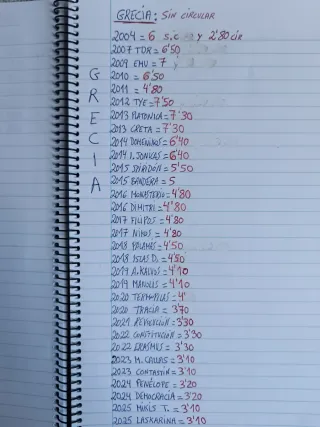 GRECIA: SIN CIRCULAR
2004 = 6 s.c y 2'80 cir
2007 TDR = 6'50
2009 EMU = 7
2010 = 6'50
2011 = 4'80
2012 TYE = 7'50
2013 PLATONICA = 7'30
2013 CRETA = 7'30
2014 DOMENIKOS = 6'40
2014 I. JONICAS = 6'40
2015 SPIRIDON = 5'50
2015 BANDERA = 5
2016 MONASTERIO = 4'80
2016 DIMITRI = 4'80
2017 FILIPOS = 4'80
2017 NIKOS = 4'80
2018 PALAMAS = 4'50
2018 ISLAS D. = 4'50
2019 A. KALVOS = 4'10
2019 MANOLIS = 4'10
2020 TERMOPILAS = 4'
2020 TRACIA = 3'70
2021 REVOLUCIÓN = 3'30
2022 CONSTITUCIÓN = 3'30
2022 ERASMUS = 3'30
2023 M. CALLAS = 3'10
2023 CONTANTIN = 3'10
2024 PENÉLOPE = 3'20
2024 DEMOCRACIA = 3'20
2025 MIKIS T. = 3'10
2025 LASKARINA = 3'10
GRECIA